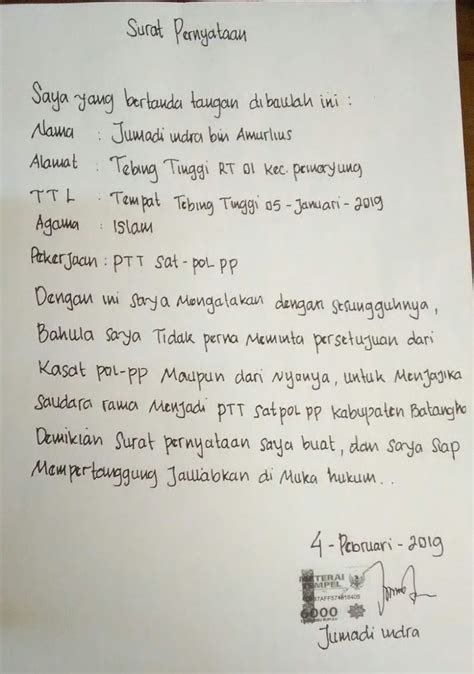 Surat Pernyataan
Saya yang bertanda tangan dibawah ini :
Nama : Jumadi indra bin Amurlius
Alamat : Tebing Tinggi RT 01 Kec. pemayung
TTL : Tempat Tebing Tinggi 05 - Januari - 2019
Agama : Islam
Pekerjaan : PTT Sat - pol pp
Dengan ini saya Mengatakan dengan sesungguhnya,
Bahwa saya Tidak perna Meminta persetujuan dari
Kasat pol-pp Maupun dari Nyonya, untuk Menjajika
Saudara rama Menjadi PTT Satpol pp Kabupaten Batangho
Demikian Surat pernyataan saya buat, dan saya Siap
Mempertanggung Jawabkan di Muka hukum . .
4 - Pebruari - 2019
METERAI
TEMPEL
6000
Jumadi indra